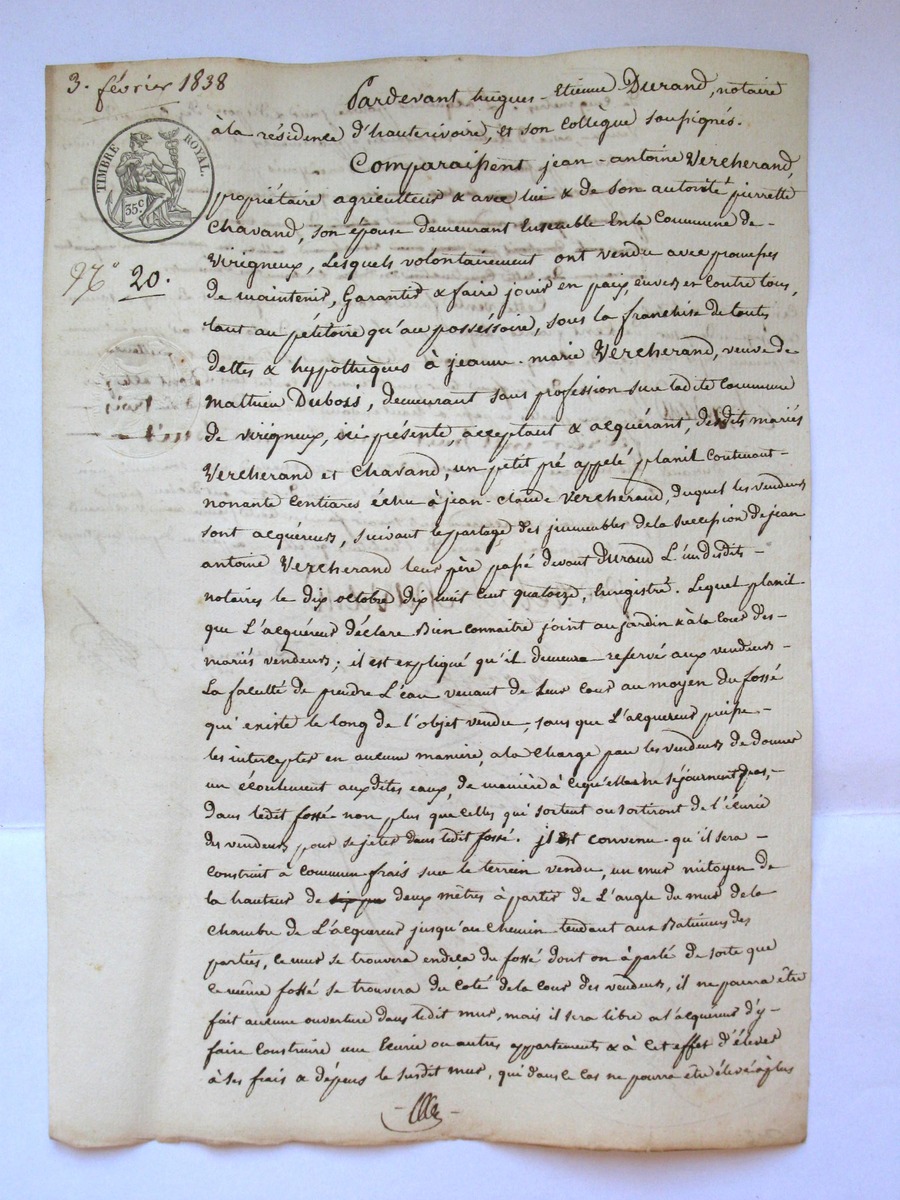 3. février 1838
Pardevant hugues-Etienne Durand, notaire
à la résidence d'hauterivoire, et son Collègue soussignés.
TIMBRE ROYAL.
35c
Comparaissent jean-antoine Vercherand,
propriétaire agriculteur & avec lui & de son autorité pierrette
Chavand, son épouse demeurant Ensemble En la Commune de-
Virigneux, Lesquels volontairement ont vendu avec promesses
No 20.
de maintenir, Garantir & faire jouir en paix, envers en Contre tous,
tant au pétitoire qu'au possessoire, sous la franchise de touts
dettes & hypothèques à jeanne-marie Vercherand, veuve de
mathieu Dubois, demeurant sans profession sur ladite Commune
de virigneux, ici présente, acceptant & acquérant, desdits mariés
Vercherand et Chavand, un petit pré appelé planil Contenant-
nonante Centiares échu à jean-Claude Vercherand, duquel les vendeurs
sont acquéreurs, suivant le partage des jmmeubles de la succession de jean
antoine Vercherand leur père passé devant durand L'un desdits-
notaires le dix octobre dix huit Cent quatorze, Enregistré. Lequel planil
que L'acquéreur déclare Bien connaitre joint au jardin & à la Cour des-
mariés vendeurs; il est expliqué qu'il demeure reservé aux vendeurs-
La faculté de prendre L'eau venant de leur Cour au moyen du fossé
qui existe le long de l'objet vendu, sans que L'acquereur puisse-
les intercepter en aucune manière, a la Charge par les vendeurs de donner
un écoulement auxdites eaux, de manière à ce qu'elles ne séjournent pas,-
dans ledit fossé non plus que Celles qui sortent ou sortiront de l'écurie
des vendeurs pour se jeter dans ledit fossé. jl est convenu qu'il sera-
Construit à Commun frais sur le terrein vendu, un mur mitoyen de
la hauteur de deux mètres à partir de L'angle du mur de la
Chambre de L'acquereur jusqu'au Chemin tendant aux Batiments des
parties, Ce mur se trouvera en deca du fossé dont on à parlé de sorte que
Ce même fossé se trouvera du Coté de la Cour des vendeurs, il ne pourra être
fait aucune ouverture dans ledit mur, mais il sera libre a l'acquereur d'y-
faire Construire une Ecurie ou autres appartements & à Cet effet d'élever
à ses frais & dépens le susdit mur, qui dans Ce Cas ne pourra être élevé à plus